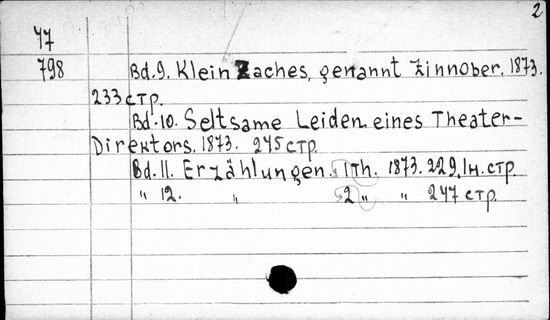 2
77
798 Bd.9. Klein Zaches, genannt Zinnober. 1873.
233 стр.
Bd.10. Seltsame Leiden eines Theater-
Direktors. 1873. 275 стр.
Bd.11. Erzählungen. 1Th. 1873. 229, 1н. стр
" 12. " 2 " " 247 стр.